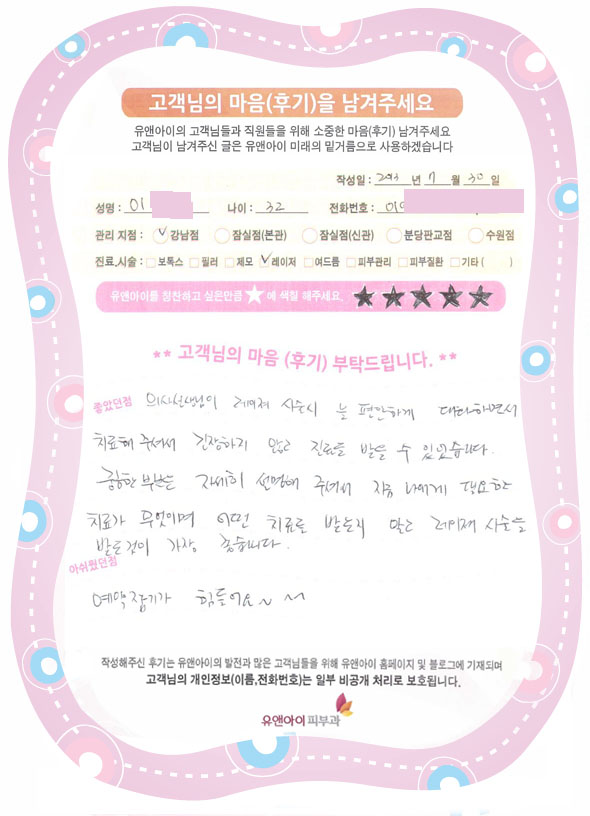 고객님의 마음(후기)을 남겨주세요
유앤아이의 고객님들과 직원들을 위해 소중한 마음(후기) 남겨주세요
고객님이 남겨주신 글은 유앤아이 미래의 밑거름으로 사용하겠습니다
작성일 : 2013 년 7 월 30 일
성명 : 이 나이 : 32 전화번호 : 010
관리 지점 : 강남점 잠실점(본관) 잠실점(신관) 분당판교점 수원점
진료,시술 : 보톡스 필러 제모 레이저 여드름 피부관리 피부질환 기타 ( )
유앤아이를 칭찬하고 싶은만큼 ★ 에 색칠 해주세요. ★★★★★
** 고객님의 마음 (후기) 부탁드립니다. **
좋았던점 의사선생님이 레이져 시술시 늘 편안하게 대화하면서
치료해 주셔서 긴장하지 않고 진료를 받을 수 있었습니다.
궁금한 부분은 자세히 설명해 주셔서 지금 나에게 필요한
치료가 무엇이며 어떤 치료를 받는지 알고 레이져 시술을
받는것이 가장 좋습니다.
아쉬웠던점
예약잡기가 힘들어요~ ~
작성해주신 후기는 유앤아이의 발전과 많은 고객님들을 위해 유앤아이 홈페이지 및 블로그에 기재되며
고객님의 개인정보(이름,전화번호)는 일부 비공개 처리로 보호됩니다.
유앤아이피부과